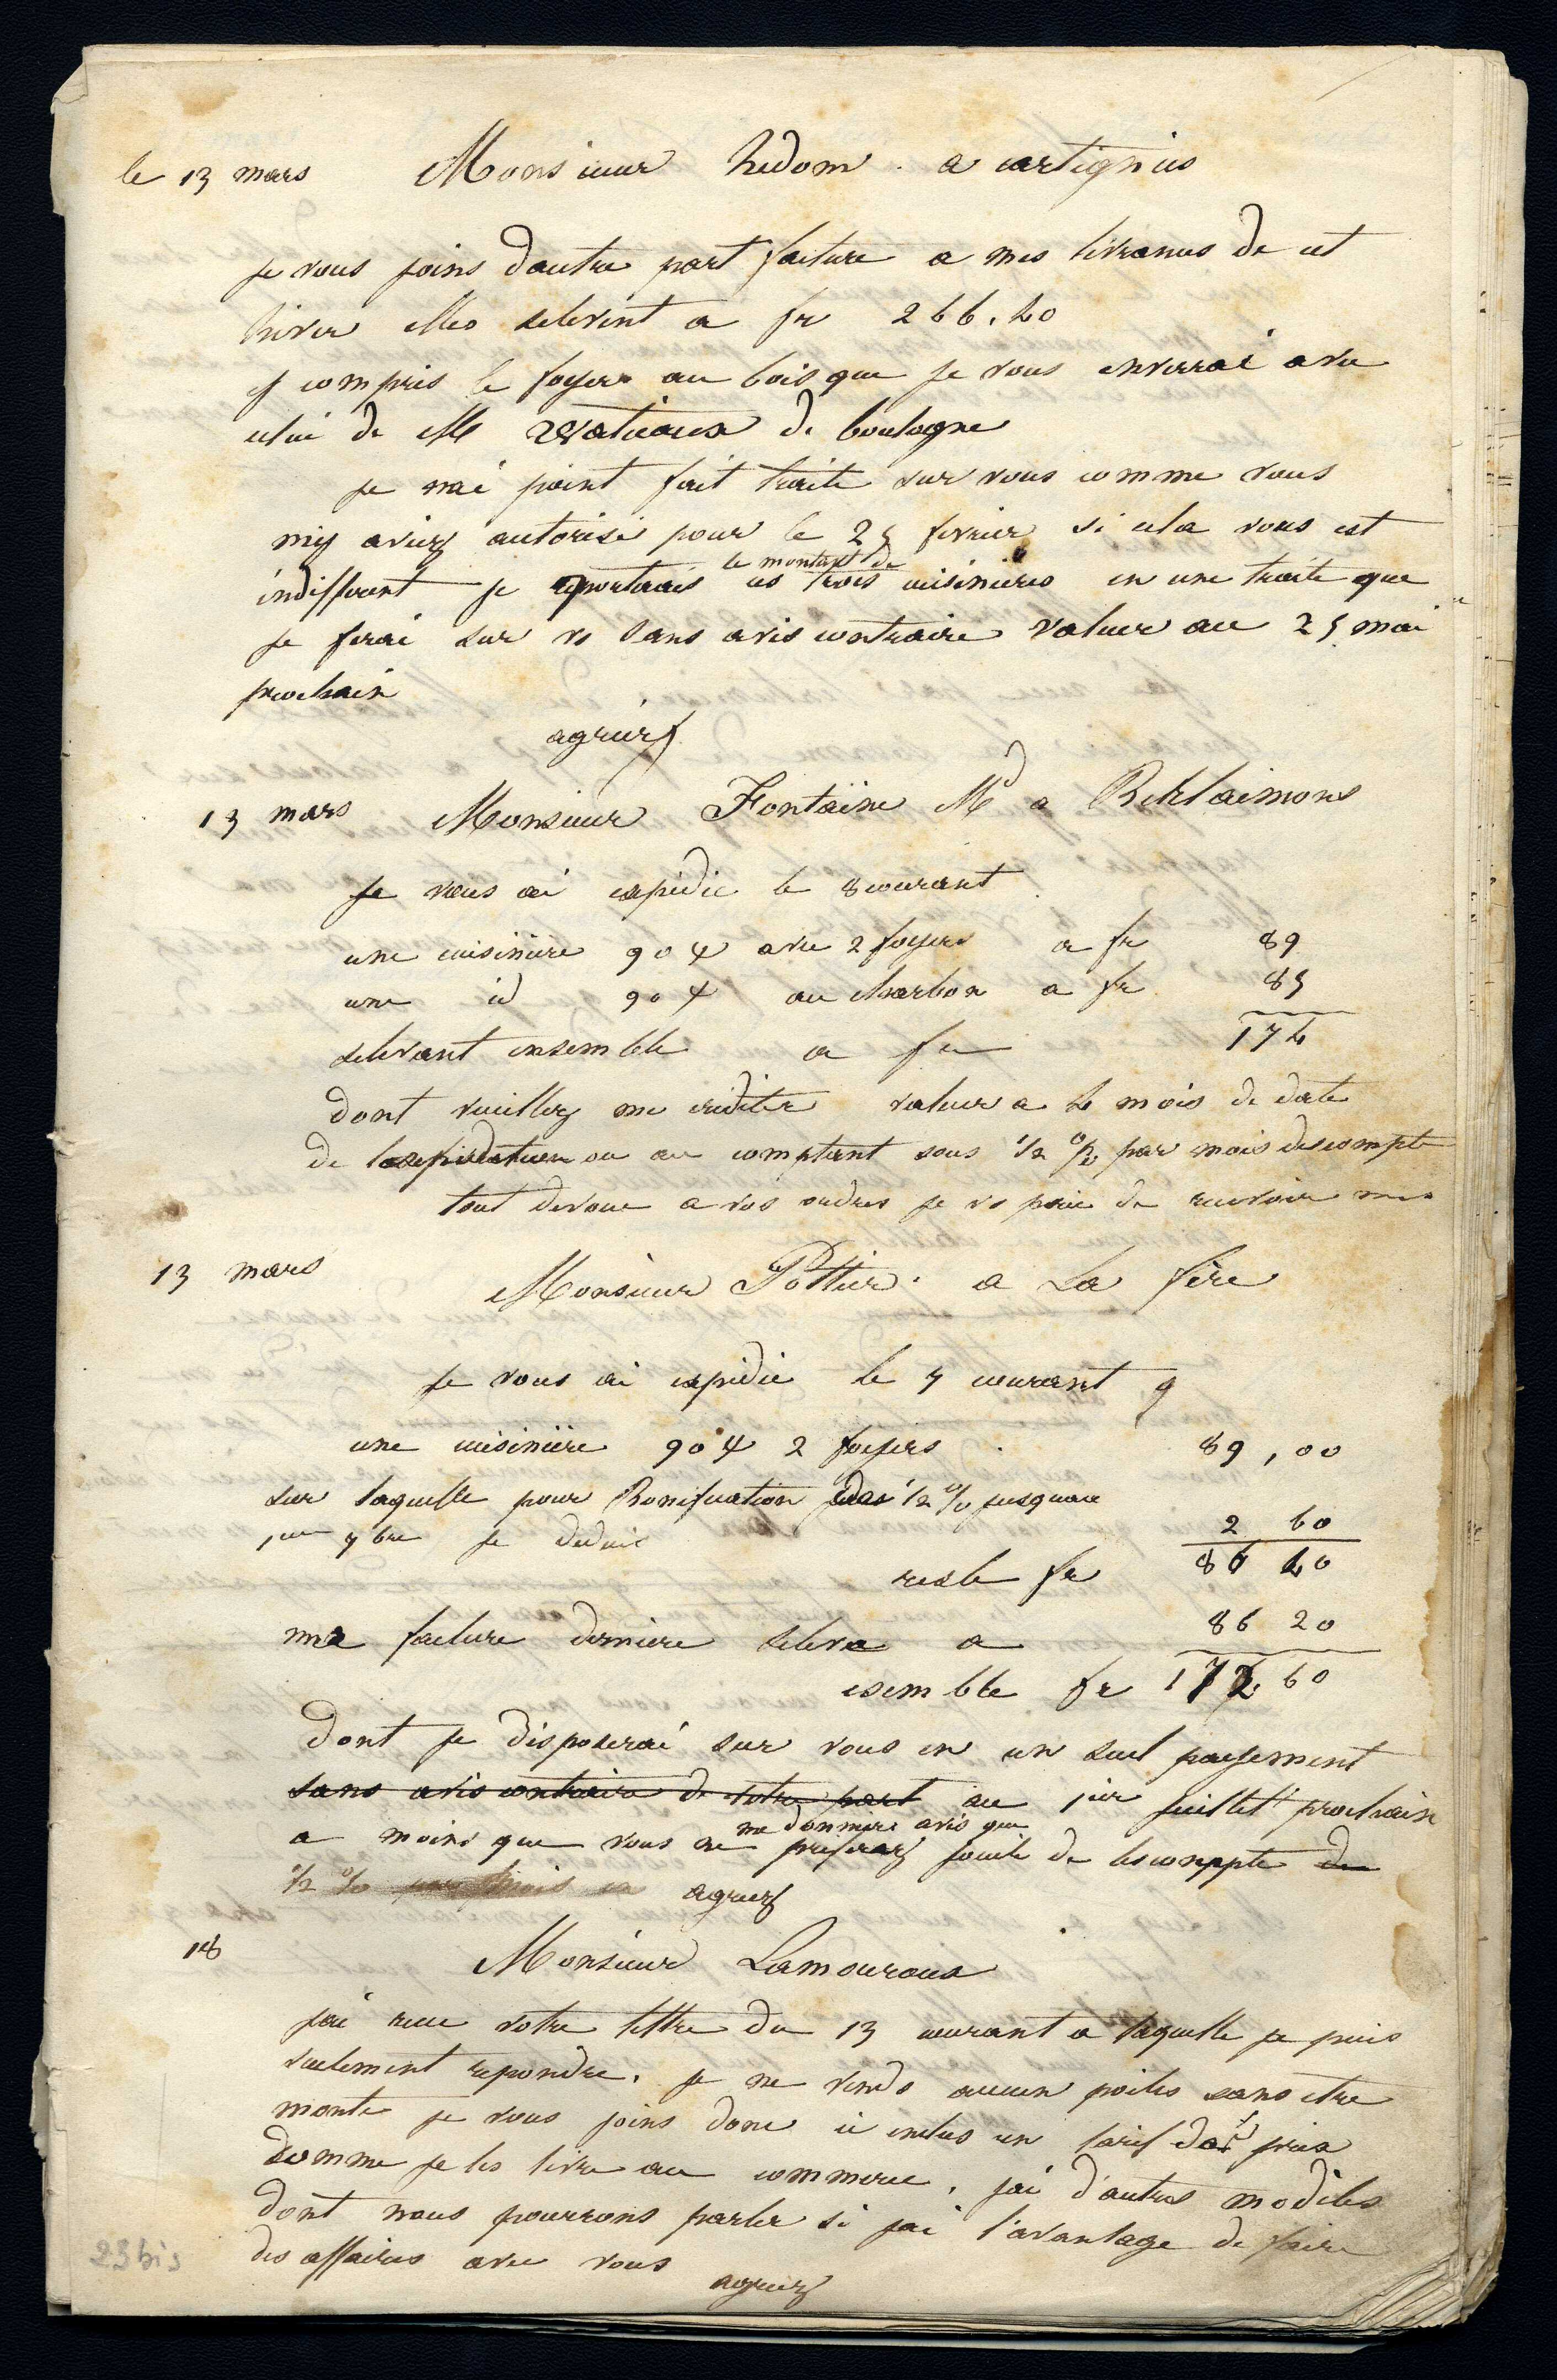 le 13 mars Monsieur hedom a cartignies
je vous joins dautre part facture a mes livrances de cet
hiver elles selevent a fr 266.40
y compris le foyer au bois que je vous enverrai avec
celui de M Watteaux de boulogne
je nai point fait traite sur vous comme vous
my aviez autorisé pour le 25 fevrier si cela vous est
le montant de
indifferent je reporterais ces trois cuisinieres en une traite que
je ferai sur vs sans avis contraire valeur au 25 mai
prochain
agreez
13 mars Monsieur Fontaine Md a
je vous ai expedie le 8 courant
une cuisinière 904 avec 2 foyers a fr 89
une id 904 au charbon a fr 85
selevant ensemble a fr 174
dont veuillez me crediter valeur a 4 mois de date
de lexpedition ou au comptant sous 1/2 % par mois descompte
tout devoue a vos ordres je vs prie de recevoir mes
13 mars Monsieur Pottier a La fère
je vous ai expedie le 7 courant
une cuisinière 904 2 foyers 89,00
sur laquelle pour Bonification des 1/2 % jusquau
1er 7bre je deduis 2 60
reste fr 86 40
ma facture derniere seleve a 86 20
esemble fr 172 60
dont je disposerai sur vous en un seul payement
sans avis contraire de votre part au 1ier juillet prochain
me donniez avis que
a moins que vous ne preferez jouir de lescompte de
1/2 % par mois agreez
18 Monsieur Lamouroux
jai recue votre lettre du 13 courant a laquelle je puis
seulement repondre. je ne vends aucun poiles sans etre
monte je vous joins donc ci inclus un tarif des prix
comme je les livre au commerce, jai d'autres modèles
dont nous pourrons parler si jai l'avantage de faire
des affaires avec vous
agreez
23 bis